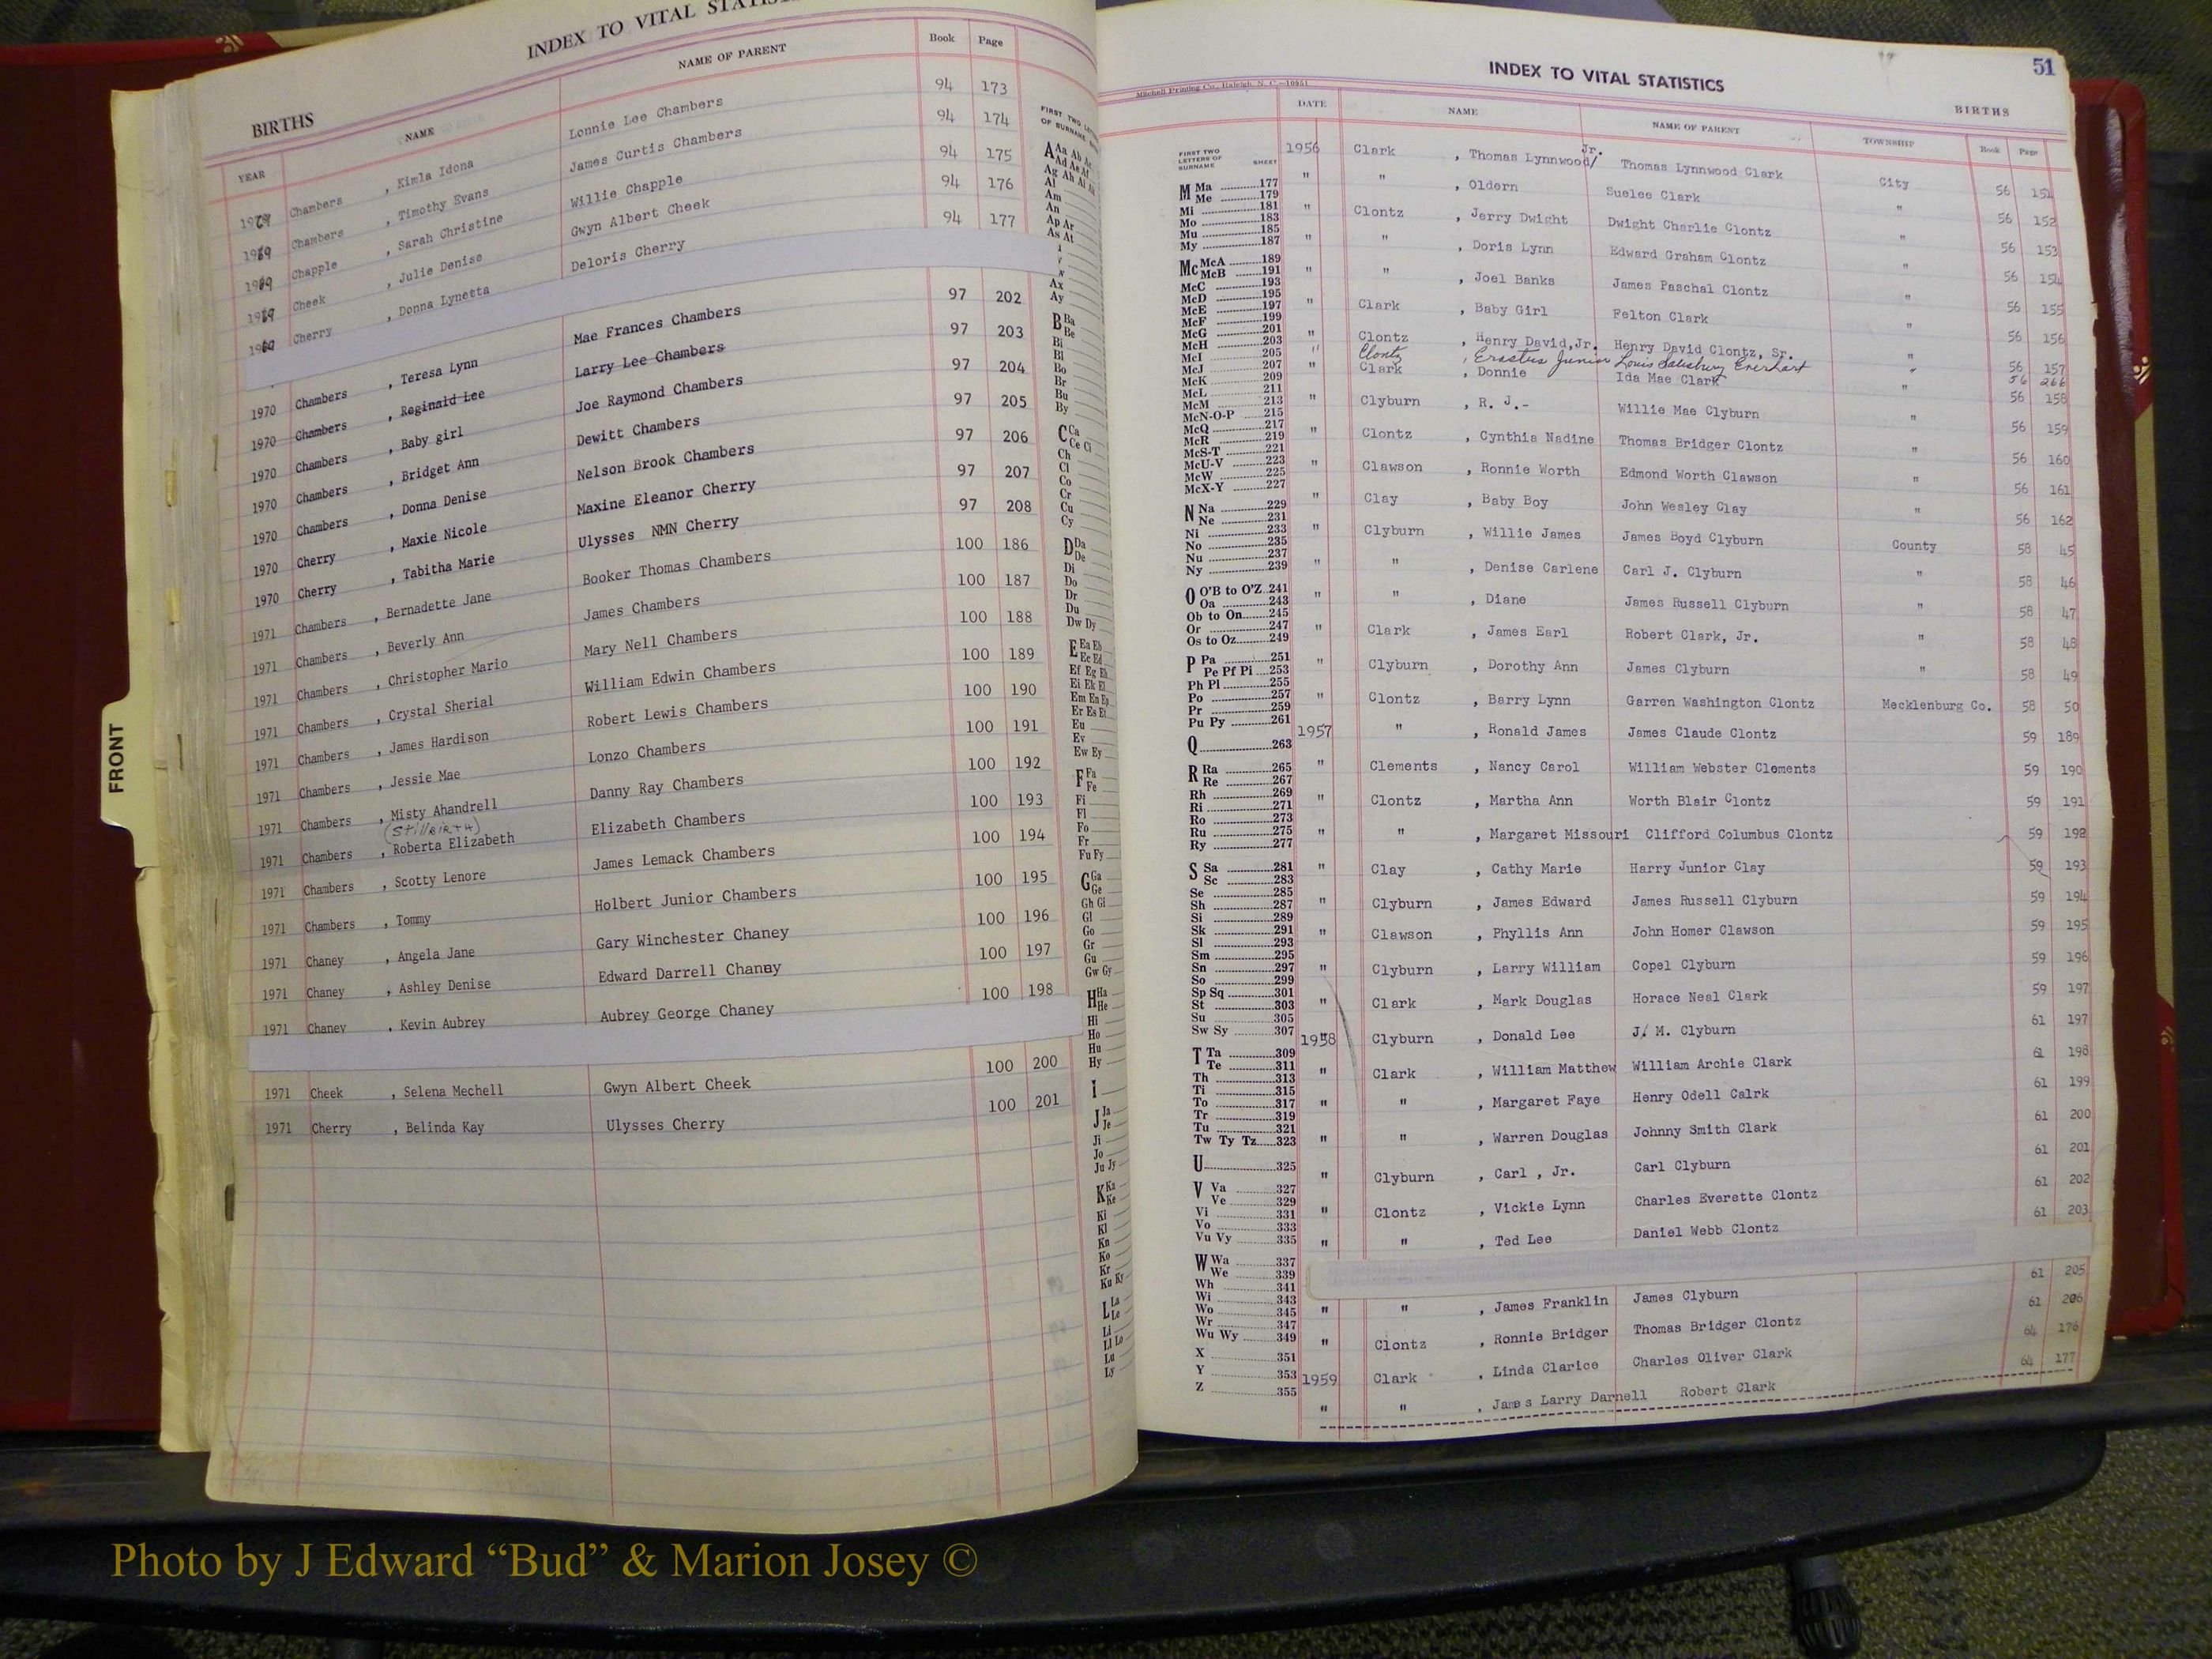 INDEX TO VITAL
BIRTHS
YEAR NAME NAME OF PARENT Book Page
Chambers , Kimla Idona Lonnie Lee Chambers 94 173
Chambers , Timothy Evans James Curtis Chambers 94 174
Chapple , Sarah Christine Willie Chapple 94 175
Cheek , Julie Denise Gwyn Albert Cheek 94 176
Cherry , Donna Lynetta Deloris Cherry 94 177
1970 Chambers , Teresa Lynn Mae Frances Chambers 97 202
1970 Chambers , Reginald Lee Larry Lee Chambers 97 203
1970 Chambers , Baby girl Joe Raymond Chambers 97 204
1970 Chambers , Bridget Ann Dewitt Chambers 97 205
1970 Chambers , Donna Denise Nelson Brook Chambers 97 206
1970 Cherry , Maxie Nicole Maxine Eleanor Cherry 97 207
1970 Cherry , Tabitha Marie Ulysses NMN Cherry 97 208
1971 Chambers , Bernadette Jane Booker Thomas Chambers 100 186
1971 Chambers , Beverly Ann James Chambers 100 187
1971 Chambers , Christopher Mario Mary Nell Chambers 100 188
1971 Chambers , Crystal Sherial William Edwin Chambers 100 189
1971 Chambers , James Hardison Robert Lewis Chambers 100 190
1971 Chambers , Jessie Mae Lonzo Chambers 100 191
1971 Chambers , Misty Ahandrell Danny Ray Chambers 100 192
(Stillbirth)
1971 Chambers , Roberta Elizabeth Elizabeth Chambers 100 193
1971 Chambers , Scotty Lenore James Lemack Chambers 100 194
1971 Chambers , Tommy Holbert Junior Chambers 100 195
1971 Chaney , Angela Jane Gary Winchester Chaney 100 196
1971 Chaney , Ashley Denise Edward Darrell Chaney 100 197
1971 Chaney , Kevin Aubrey Aubrey George Chaney 100 198
100 200
1971 Cheek , Selena Mechell Gwyn Albert Cheek
100 201
1971 Cherry , Belinda Kay Ulysses Cherry
FRONT
51
INDEX TO VITAL STATISTICS
Mitchell Printing Co., Raleigh, N. C.—10951
BIRTHS
DATE NAME NAME OF PARENT TOWNSHIP Book Page
1956 Clark , Thomas Lynnwood/ Jr. Thomas Lynnwood Clark City 56 151
" " , Oldern Suelee Clark " 56 152
" Clontz , Jerry Dwight Dwight Charlie Clontz " 56 153
" " , Doris Lynn Edward Graham Clontz " 56 154
" " , Joel Banks James Paschal Clontz " 56 155
" Clark , Baby Girl Felton Clark " 56 156
" Clontz , Henry David,Jr. Henry David Clontz, Sr. " 56 157
" Clontz , Erastus Junior Louis Salisbury Everhart " 56 266
" Clark , Donnie Ida Mae Clark " 56 158
" Clyburn , R. J.- Willie Mae Clyburn " 56 159
" Clontz , Cynthia Nadine Thomas Bridger Clontz " 56 160
" Clawson , Ronnie Worth Edmond Worth Clawson " 56 161
" Clay , Baby Boy John Wesley Clay " 56 162
" Clyburn , Willie James James Boyd Clyburn County 58 45
" " , Denise Carlene Carl J. Clyburn " 58 46
" " , Diane James Russell Clyburn " 58 47
" Clark , James Earl Robert Clark, Jr. " 58 48
" Clyburn , Dorothy Ann James Clyburn " 58 49
" Clontz , Barry Lynn Garren Washington Clontz Mecklenburg Co. 58 50
1957 " , Ronald James James Claude Clontz 59 189
" Clements , Nancy Carol William Webster Clements 59 190
" Clontz , Martha Ann Worth Blair Clontz 59 191
" " , Margaret Missouri Clifford Columbus Clontz 59 192
" Clay , Cathy Marie Harry Junior Clay 59 193
" Clyburn , James Edward James Russell Clyburn 59 194
" Clawson , Phyllis Ann John Homer Clawson 59 195
" Clyburn , Larry William Copel Clyburn 59 196
" Clark , Mark Douglas Horace Neal Clark 59 197
1958 Clyburn , Donald Lee J. M. Clyburn 61 197
" Clark , William Matthew William Archie Clark 61 198
" " , Margaret Faye Henry Odell Calrk 61 199
" " , Warren Douglas Johnny Smith Clark 61 200
" Clyburn , Carl , Jr. Carl Clyburn 61 201
" Clontz , Vickie Lynn Charles Everette Clontz 61 202
" " , Ted Lee Daniel Webb Clontz 61 203
" " , James Franklin James Clyburn 61 205
" Clontz , Ronnie Bridger Thomas Bridger Clontz 61 206
1959 Clark , Linda Clarice Charles Oliver Clark 64 176
" " , James Larry Darnell Robert Clark 64 177
FIRST TWO LETTERS OF SURNAME SHEET
M Ma 177
Me 179
Mi 181
Mo 183
Mu 185
My 187
Mc McA 189
McB 191
McC 193
McD 195
McE 197
McF 199
McG 201
McH 203
McI 205
McJ 207
McK 209
McL 211
McM 213
McN-O-P 215
McQ 217
McR 219
McS-T 221
McU-V 223
McW 225
McX-Y 227
N Na 229
Ne 231
Ni 233
No 235
Nu 237
Ny 239
O O'B to O'Z 241
Oa 243
Ob to On 245
Or 247
Os to Oz 249
P Pa 251
Pe Pf Pi 253
Ph Pl 255
Po 257
Pr 259
Pu Py 261
Q 263
R Ra 265
Re 267
Rh 269
Ri 271
Ro 273
Ru 275
Ry 277
S Sa 281
Sc 283
Se 285
Sh 287
Si 289
Sk 291
Sl 293
Sm 295
Sn 297
So 299
Sp Sq 301
St 303
Su 305
Sw Sy 307
T Ta 309
Te 311
Th 313
Ti 315
To 317
Tr 319
Tu 321
Tw Ty Tz 323
U 325
V Va 327
Ve 329
Vi 331
Vo 333
Vu Vy 335
W Wa 337
We 339
Wh 341
Wi 343
Wo 345
Wr 347
Wu Wy 349
X 351
Y 353
Z 355
Photo by J Edward “Bud” & Marion Josey ©